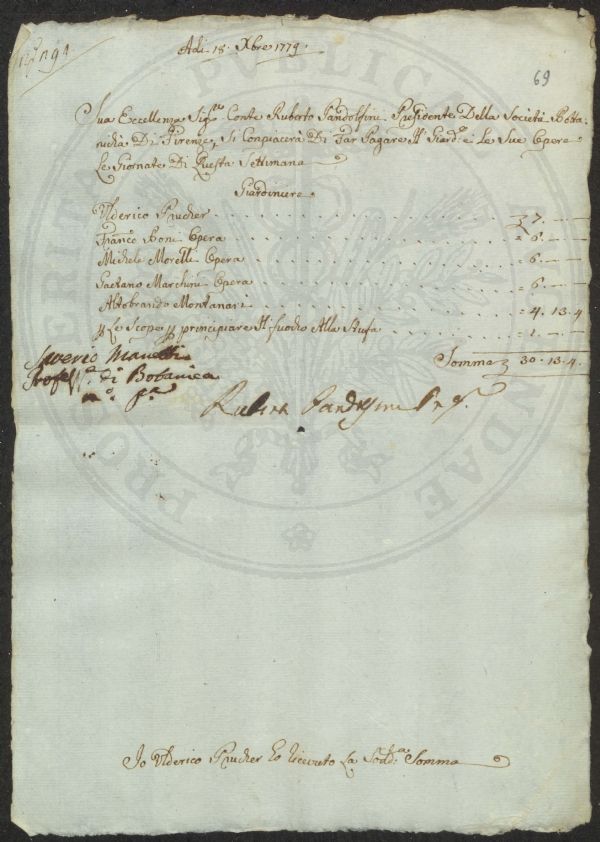 n.° 94
Adi. 18. Xbre 1779.
69
Sua Eccellenza Sig.re Conte Ruberto Pandolfini Presidente Della Società Botta-
nicha Di Firenze, Si Conpiacerà Di Far Pagare Il Giard.e e Le Sue Opere
Le Giornate Di Questa Settimana
Giardiniere
Ulderico Prucher . . . . . . . . . . . 7. — —
Franc.o Boni Opera . . . . . . . . . . = 6. — —
Michele Morelli Opera . . . . . . . . . = 6. — —
Gaetano Marchini Opera . . . . . . . . = 6. — —
Altobrando Montanari . . . . . . . . . = 4. 13. 4
p Le Scope p principiare Il fuocho Alla Stufa . . . . = 1. — —
Somma 30. 13. 4.
Saverio Manetti
Profess.re di Botanica
m.o p.a
Ruberto Pandolfini Pres.
Io Ulderico Prucher Ho Ricevuto La Sod.a Somma
PUBLICAE
PROSPERITATI